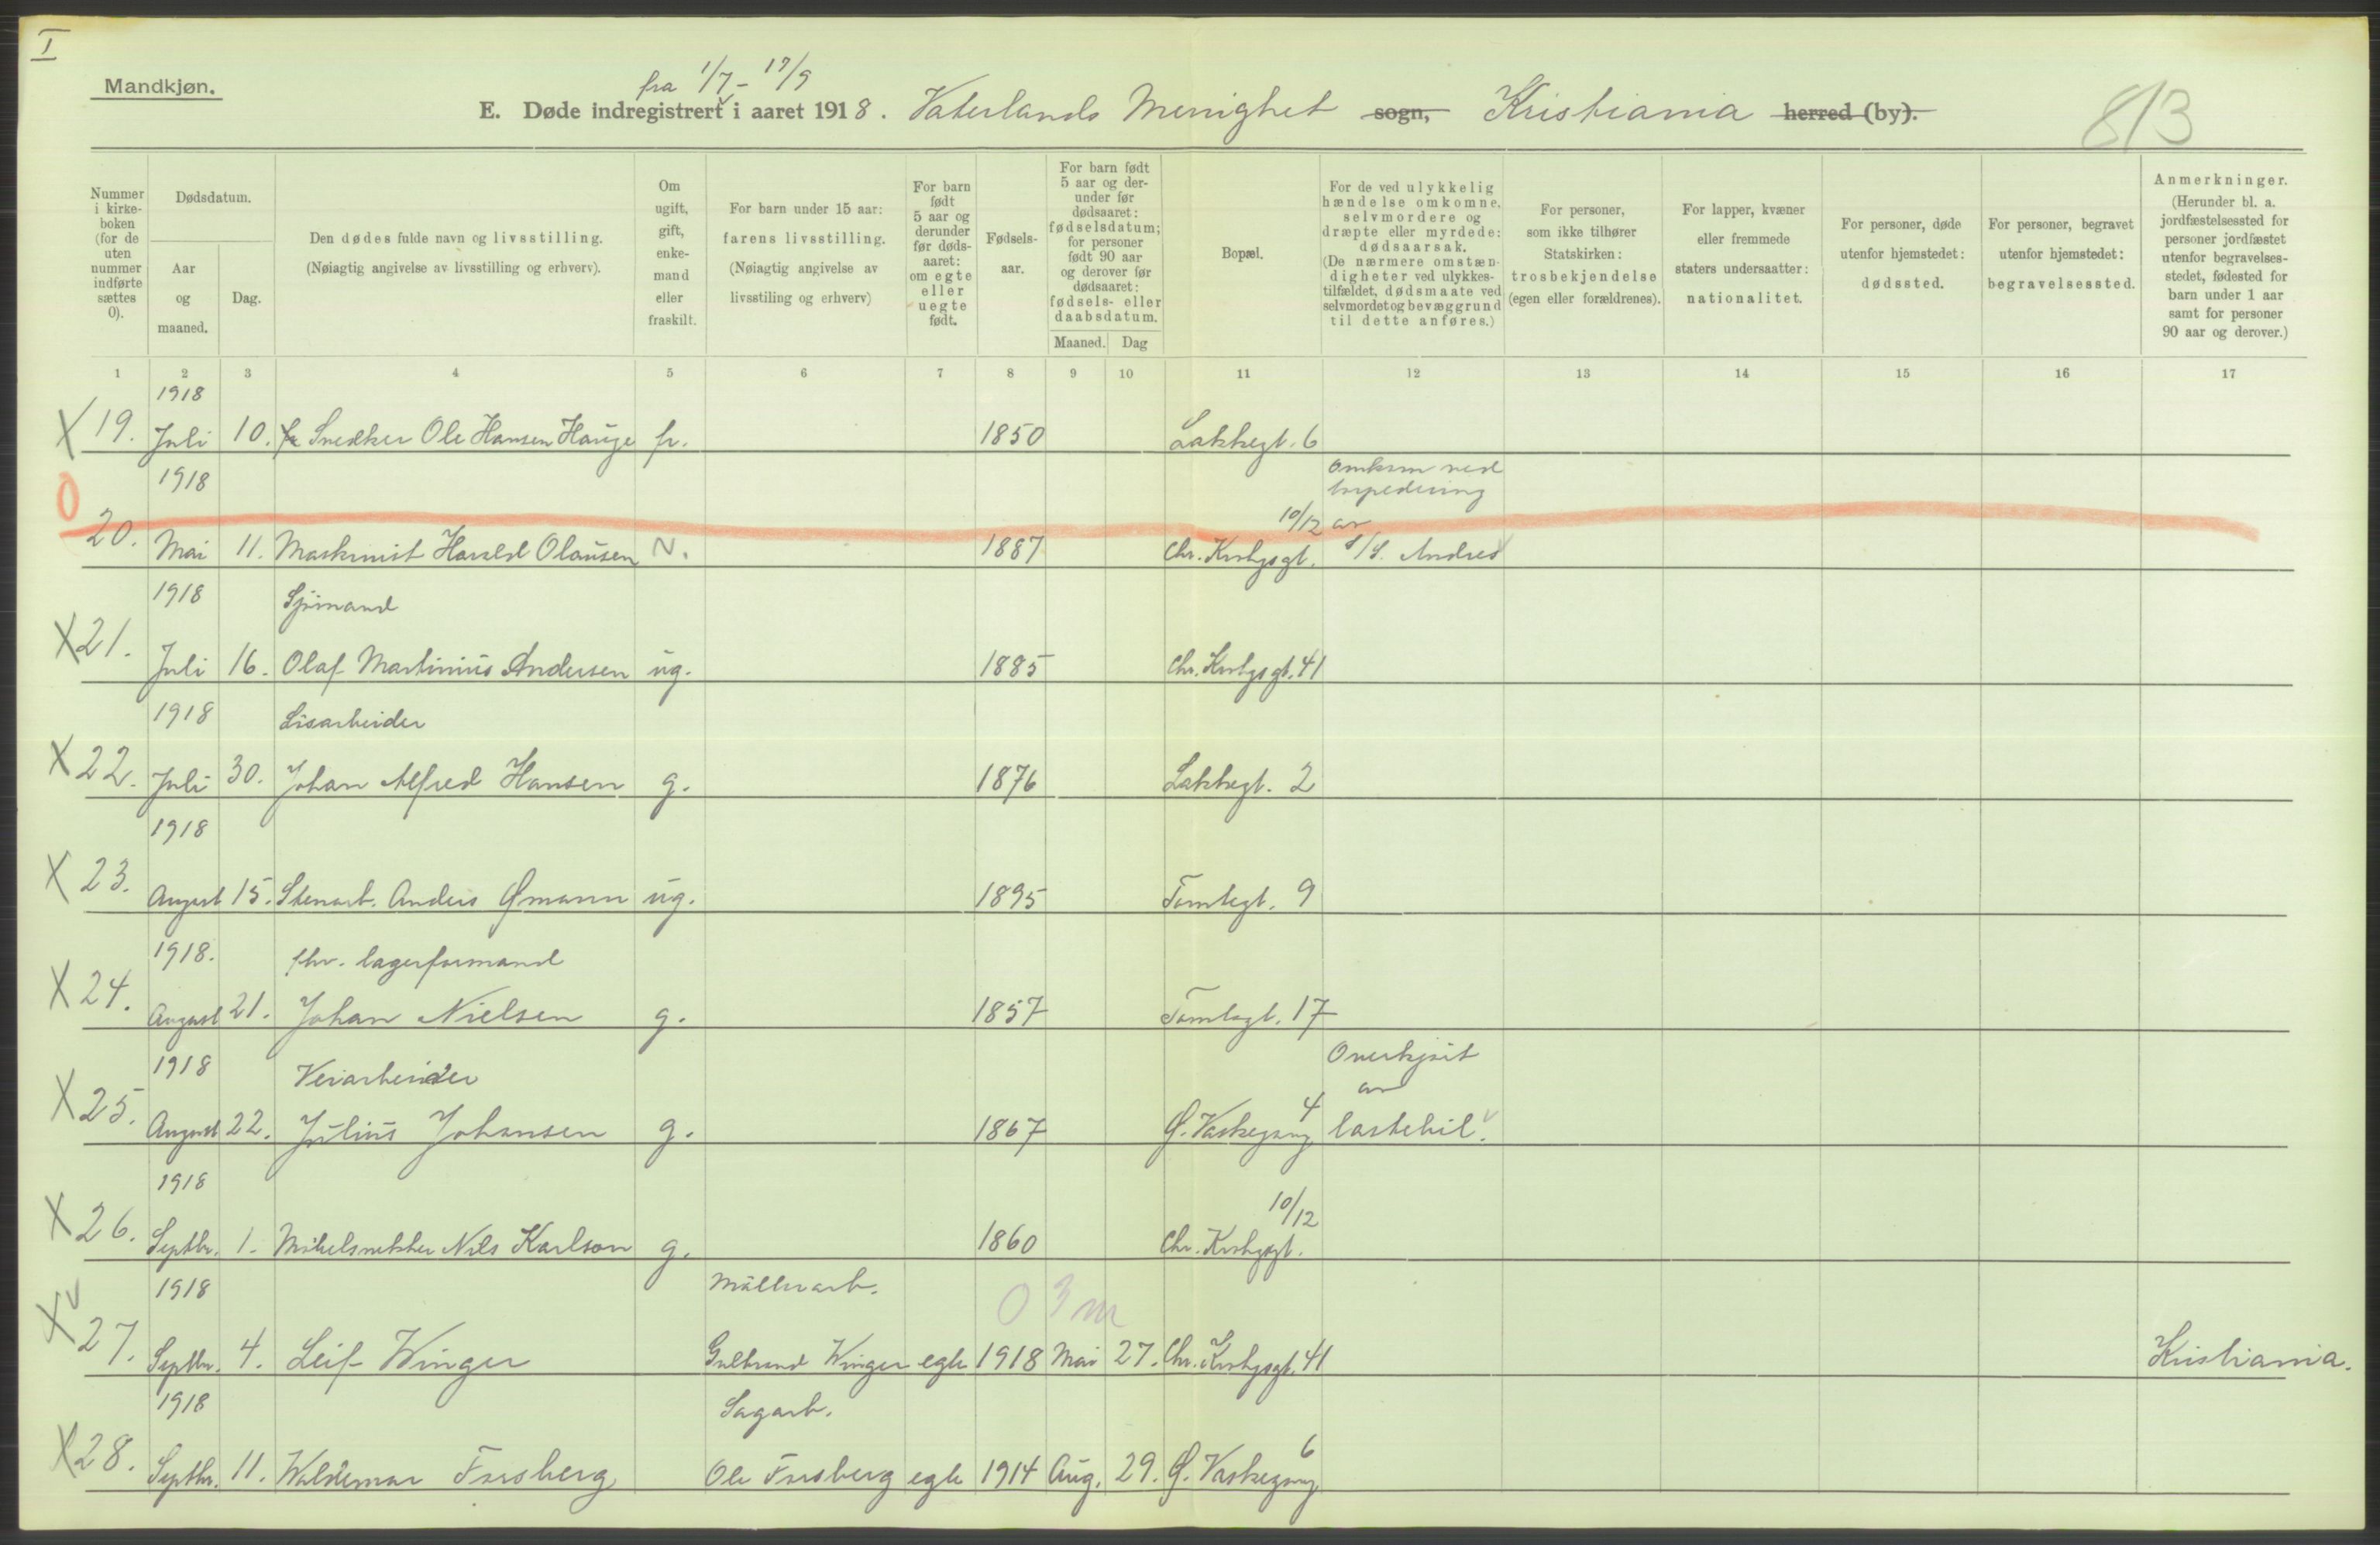 I
Mandkjøn.
fra 1/7 - 17/9
E. Døde indregistrert i aaret 1918. Vaterlands Menighet sogn, Kristiania herred (by).
813
Nummer i kirkeboken (for de uten nummer indførte sættes 0).
Dødsdatum.
Aar og maaned.
Dag.
Den dødes fulde navn og livsstilling.
(Nøiagtig angivelse av livsstilling og erhverv).
Om ugift, gift, enkemand eller fraskilt.
For barn under 15 aar: farens livsstilling.
(Nøiagtig angivelse av livsstiling og erhverv)
For barn født 5 aar og derunder før dødsaaret: om egte eller uegte født.
Fødselsaar.
For barn født 5 aar og derunder før dødsaaret: fødselsdatum; for personer født 90 aar og derover før dødsaaret: fødsels- eller daabsdatum.
Maaned. Dag
Bopæl.
For de ved ulykkelig hændelse omkomne, selvmordere og dræpte eller myrdede: dødsaarsak.
(De nærmere omstændigheter ved ulykkestilfældet, dødsmaate ved selvmordet og bevæggrund til dette anføres.)
For personer, som ikke tilhører Statskirken: trosbekjendelse (egen eller forældrenes).
For lapper, kvæner eller fremmede staters undersaatter: nationalitet.
For personer, døde utenfor hjemstedet: dødssted.
For personer, begravet utenfor hjemstedet: begravelsessted.
Anmerkninger.
(Herunder bl. a. jordfæstelsessted for personer jordfæstet utenfor begravelsesstedet, fødested for barn under 1 aar samt for personer 90 aar og derover.)
1 2 3 4 5 6 7 8 9 10 11 12 13 14 15 16 17
1918
X 19. Juli 10. Snedker Ole Hansen Hauge fr. 1850 Lakkegt. 6
1918 Omkom ved
torpedering
0 10/12 av
20. Mai 11. Maskinist Harald Olausen 1887 Chr. Krohgsgt. s/s. Andres
1918 Sjømand
X 21. Juli 16. Olaf Martinius Andersen ug. 1885 Chr. Krohgsgt. 41
1918 Løsarbeider
X 22. Juli 30. Johan Alfred Hansen g. 1876 Lakkegt. 2
1918
X 23. August 15. Stenarb. Anders Ømann ug. 1895 Tomtegt. 9
1918. fhv. lagerformand
X 24. August 21. Johan Nielsen g. 1857 Tomtegt. 17
1918 Veiarbeider Overkjørt
av
X 25. August 22. Julius Johansen g. 1867 Ø. Vaskegang 4 lastebil.
1918 10/12
X 26. Septbr. 1. Møbelsnekker Nils Karlson g. 1860 Chr. Krohgsgt.
1918 Møllerarb. 0 3 m
X 27. Septbr. 4. Leif Winger Gulbrand Winger egte 1918 Mai 27. Chr. Krohgsgt. 41 Kristiania.
1918 Sagarb.
X 28. Septbr. 11. Waldemar Forsberg Ole Forsberg egte 1914 Aug. 29. Ø. Vaskegang 6